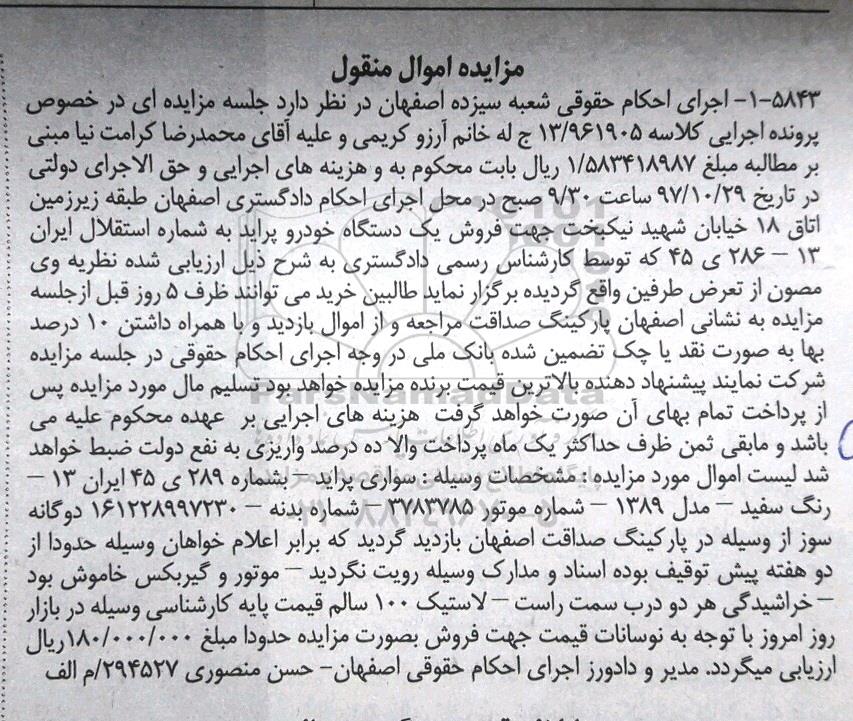 مزایده اموال منقول
۱-۵۸۴۳- اجرای احکام حقوقی شعبه سیزده اصفهان در نظر دارد جلسه مزایده ای در خصوص
پرونده اجرایی کلاسه ۱۳/۹۶۱۹۰۵ ج له خانم آرزو کریمی و علیه آقای محمدرضا کرامت نیا مبنی
بر مطالبه مبلغ ۱/۵۸۳۴۱۸۹۸۷ ریال بابت محکوم به و هزینه های اجرایی و حق الاجرای دولتی
در تاریخ ۹۷/۱۰/۲۹ ساعت ۹/۳۰ صبح در محل اجرای احکام دادگستری اصفهان طبقه زیرزمین
اتاق ۱۸ خیابان شهید نیکبخت جهت فروش یک دستگاه خودرو پراید به شماره استقلال ایران
۱۳ – ۲۸۶ ی ۴۵ که توسط کارشناس رسمی دادگستری به شرح ذیل ارزیابی شده نظریه وی
مصون از تعرض طرفین واقع گردیده برگزار نماید طالبین خرید می توانند ظرف ۵ روز قبل ازجلسه
مزایده به نشانی اصفهان پارکینگ صداقت مراجعه و از اموال بازدید و با همراه داشتن ۱۰ درصد
بها به صورت نقد یا چک تضمین شده بانک ملی در وجه اجرای احکام حقوقی در جلسه مزایده
شرکت نمایند پیشنهاد دهنده بالاترین قیمت برنده مزایده خواهد بود تسلیم مال مورد مزایده پس
از پرداخت تمام بهای آن صورت خواهد گرفت هزینه های اجرایی بر عهده محکوم علیه می
باشد و مابقی ثمن ظرف حداکثر یک ماه پرداخت والا ده درصد واریزی به نفع دولت ضبط خواهد
شد لیست اموال مورد مزایده: مشخصات وسیله : سواری پراید – بشماره ۲۸۹ ی ۴۵ ایران ۱۳ –
رنگ سفید – مدل ۱۳۸۹ – شماره موتور ۳۷۸۳۷۸۵ – شماره بدنه – ۱۶۱۲۲۸۹۹۷۲۳۰ دوگانه
سوز از وسیله در پارکینگ صداقت اصفهان بازدید گردید که برابر اعلام خواهان وسیله حدودا از
دو هفته پیش توقیف بوده اسناد و مدارک وسیله رویت نگردید – موتور و گیربکس خاموش بود
– خراشیدگی هر دو درب سمت راست – لاستیک ۱۰۰ سالم قیمت پایه کارشناسی وسیله در بازار
روز امروز با توجه به نوسانات قیمت جهت فروش بصورت مزایده حدودا مبلغ ۱۸۰/۰۰۰/۰۰۰ریال
ارزیابی میگردد. مدیر و دادورز اجرای احکام حقوقی اصفهان- حسن منصوری ۲۹۴۵۲۷/م الف
ParsNamadData